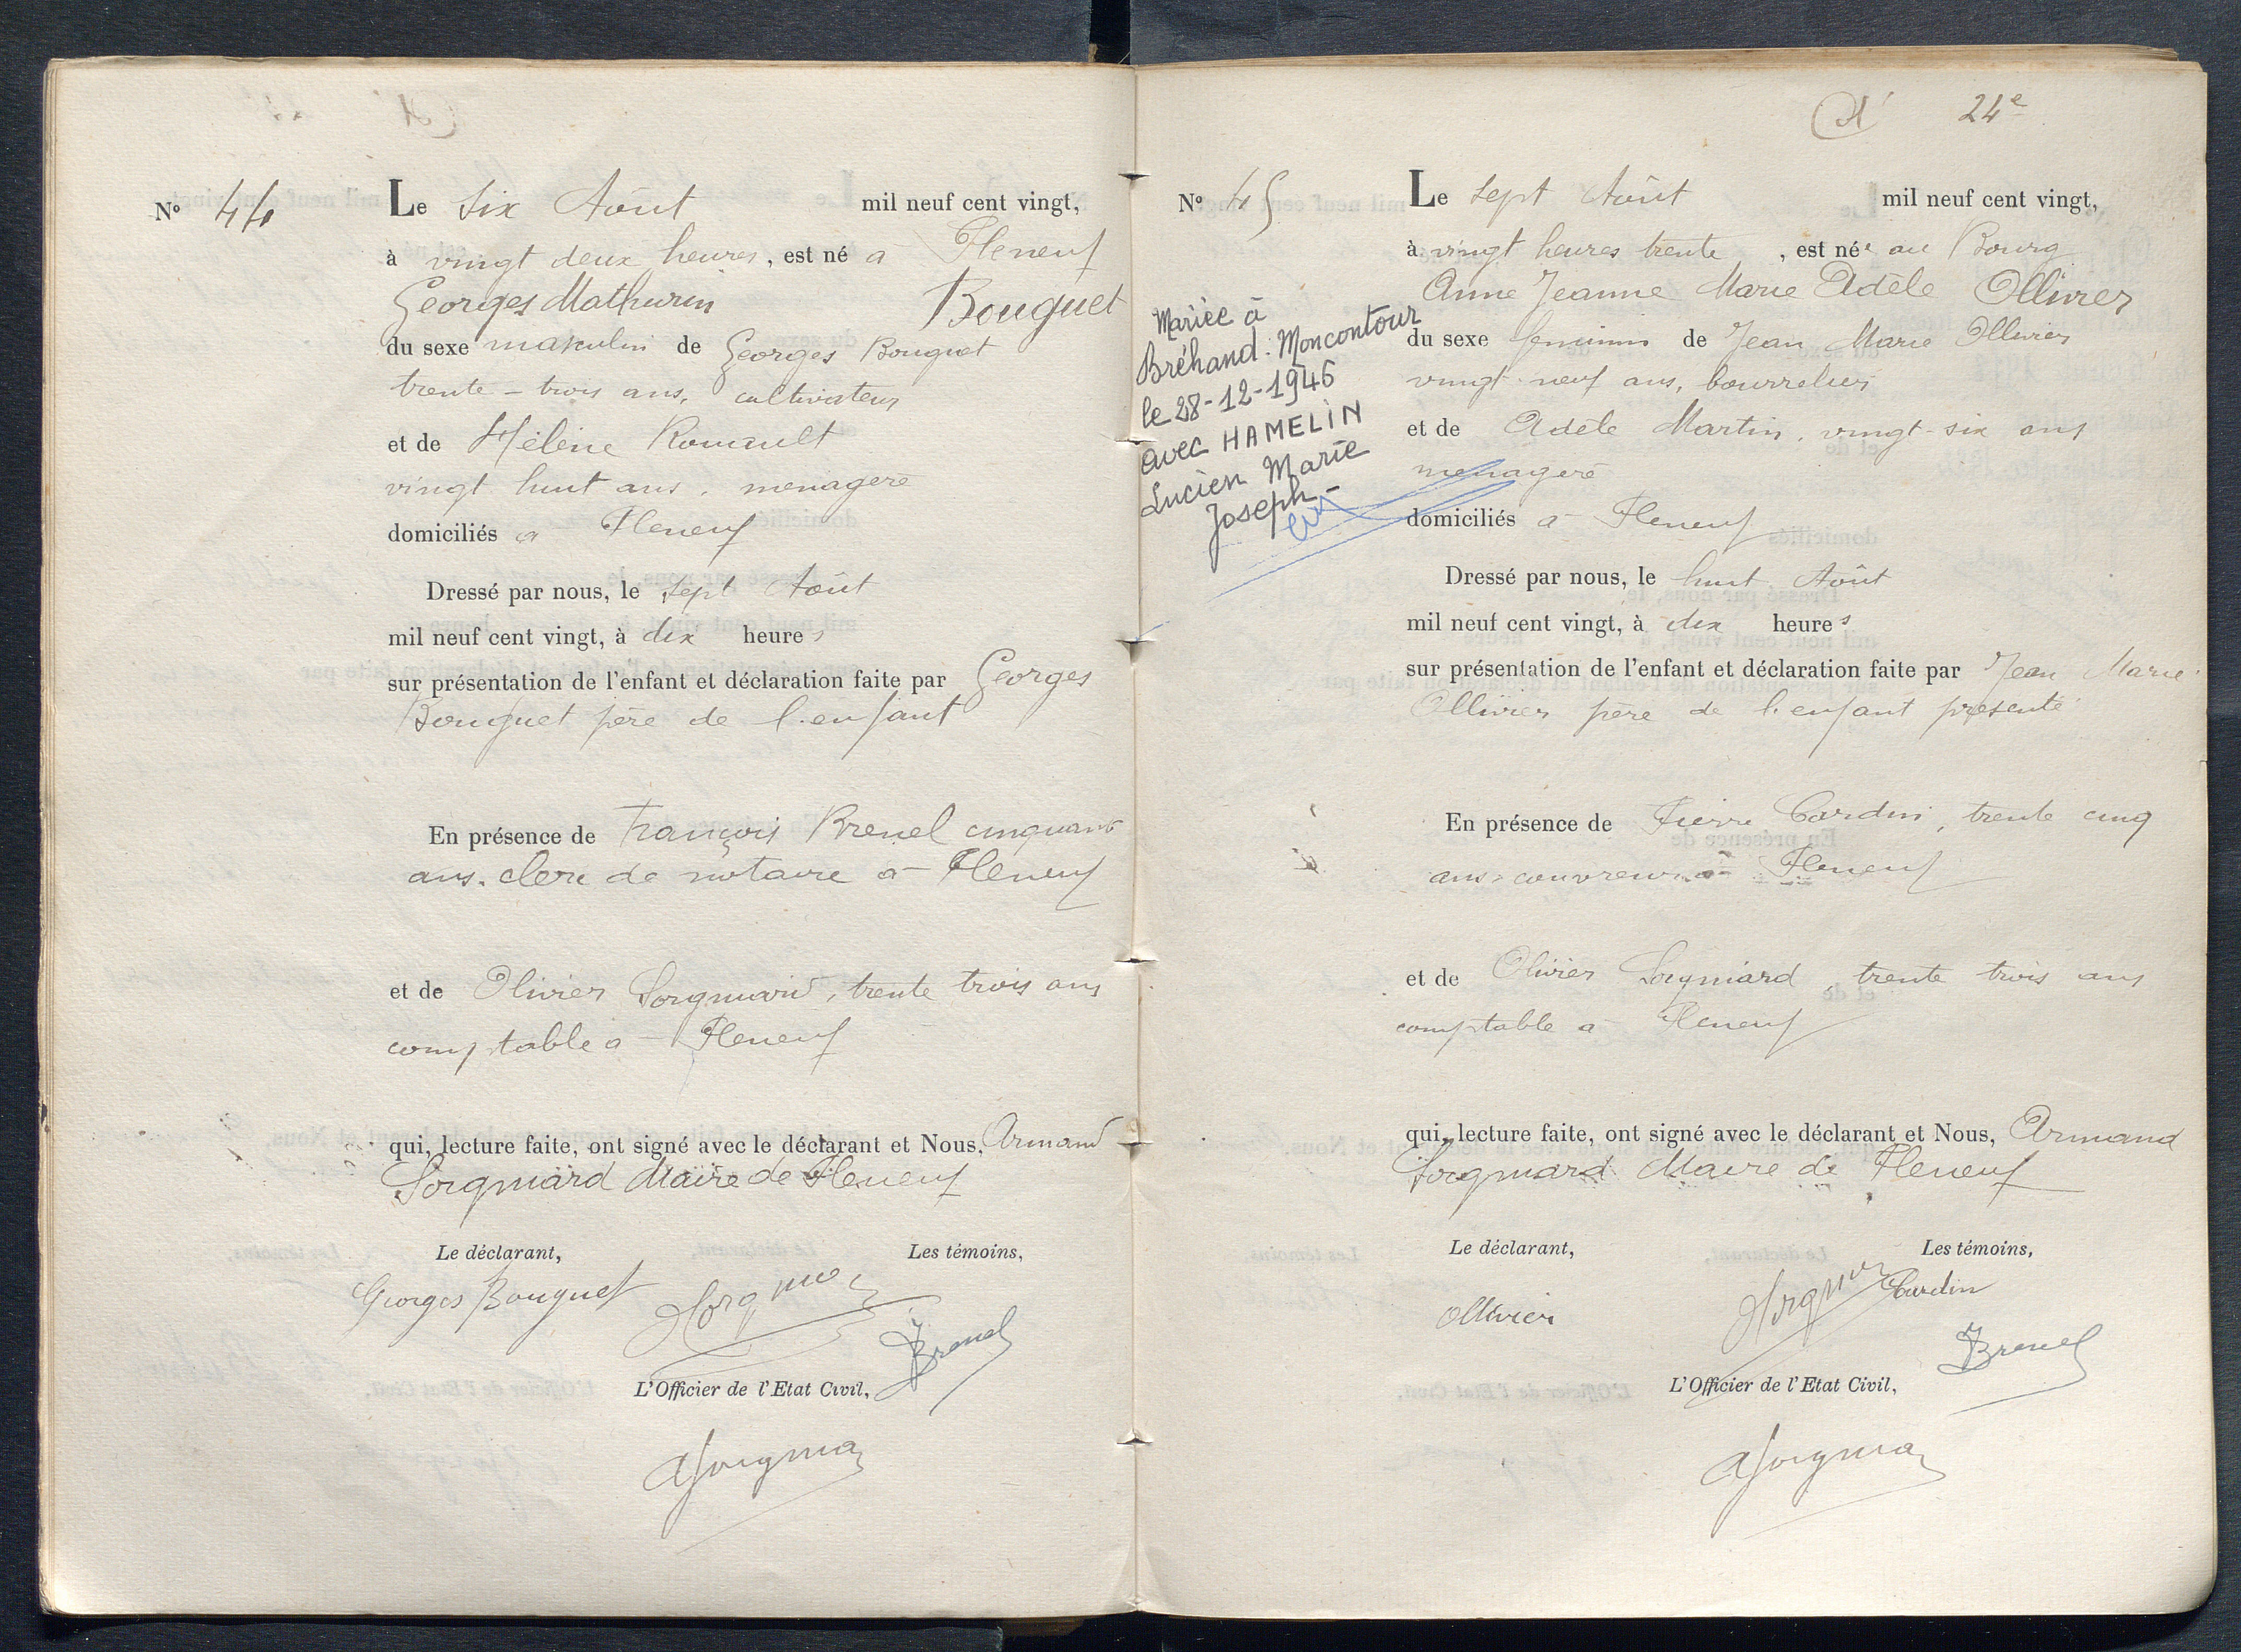 N° 44
Le Six Août mil neuf cent vingt,
à vingt deux heures, est né a Pleneuf
Georges Mathurin Bouguet
du sexe masculin de Georges Bouguet
trente-trois ans, cultivateur
et de Hélène Rouault
vingt huit ans, menagere
domiciliés a Pleneuf
Dressé par nous, le Sept Août
mil neuf cent vingt, à dix heures
sur présentation de l'enfant et déclaration faite par Georges
Bouguet père de l'enfant
En présence de François Brenel cinquante
ans, clerc de notaire a Pleneuf
et de Olivier Sorgniard, trente trois ans
comptable a Pleneuf
qui, lecture faite, ont signé avec le déclarant et Nous, Armand
Sorgniard Maire de Pleneuf
Le déclarant, Les témoins,
Georges Bouguet
Brenel
L'Officier de l'Etat Civil,
24e
N° 45
Le Sept Août mil neuf cent vingt,
à vingt heures trente, est née au Bourg
Anne Jeanne Marie Adèle Ollivier
du sexe feminin de Jean Marie Ollivier
vingt-neuf ans, bourrelier
et de Adèle Martin, vingt-six ans
menagere
domiciliés a Pleneuf
Mariée à
Bréhand-Moncontour
le 28-12-1946
avec HAMELIN
Lucien Marie
Joseph-
Dressé par nous, le huit Août
mil neuf cent vingt, à dix heures
sur présentation de l'enfant et déclaration faite par Jean Marie
Ollivier père de l'enfant présenté
En présence de Pierre Cardin, trente cinq
ans, couvreur a Pleneuf
et de Olivier Sorgniard, trente trois ans
comptable a Pleneuf
qui, lecture faite, ont signé avec le déclarant et Nous, Armand
Sorgniard Maire de Pleneuf
Le déclarant, Les témoins,
Ollivier Cardin
Brenel
L'Officier de l'Etat Civil,